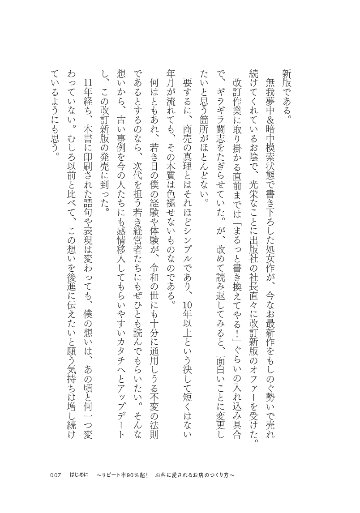 新版である。
　無我夢中＆暗中模索状態で書き下ろした処女作が、今なお最新作をもしのぐ勢いで売れ
続けてくれているお陰で、光栄なことに出版社の社長直々に改訂新版のオファーを受けた。
　改訂作業に取り掛かる直前までは「まるっと書き換えてやる！」ぐらいの入れ込み具合
で、ギラギラ闘志をたぎらせていた。が、改めて読み返してみると、面白いことに変更し
たいと思う箇所がほとんどない。
　要するに、商売の真理とはそれほどシンプルであり、10年以上という決して短くはない
年月が流れても、その本質は色褪せないものなのである。
　何はともあれ、若き日の僕の経験や体験が、令和の世にも十分に通用しうる不変の法則
であるとするのなら、次代を担う若き経営者たちにもぜひとも読んでもらいたい。そんな
想いから、古い事例を今の人たちにも感情移入してもらいやすいカタチへとアップデート
し、この改訂新版の発売に到った。
　11年経ち、本書に印刷された語句や表現は変わっても、僕の想いは、あの頃と何一つ変
わっていない。むしろ以前と比べて、この想いを後進に伝えたいと願う気持ちは増し続け
ているようにも思う。
007　はじめに　～リピート率90％超！　お客に愛されるお店のつくり方～